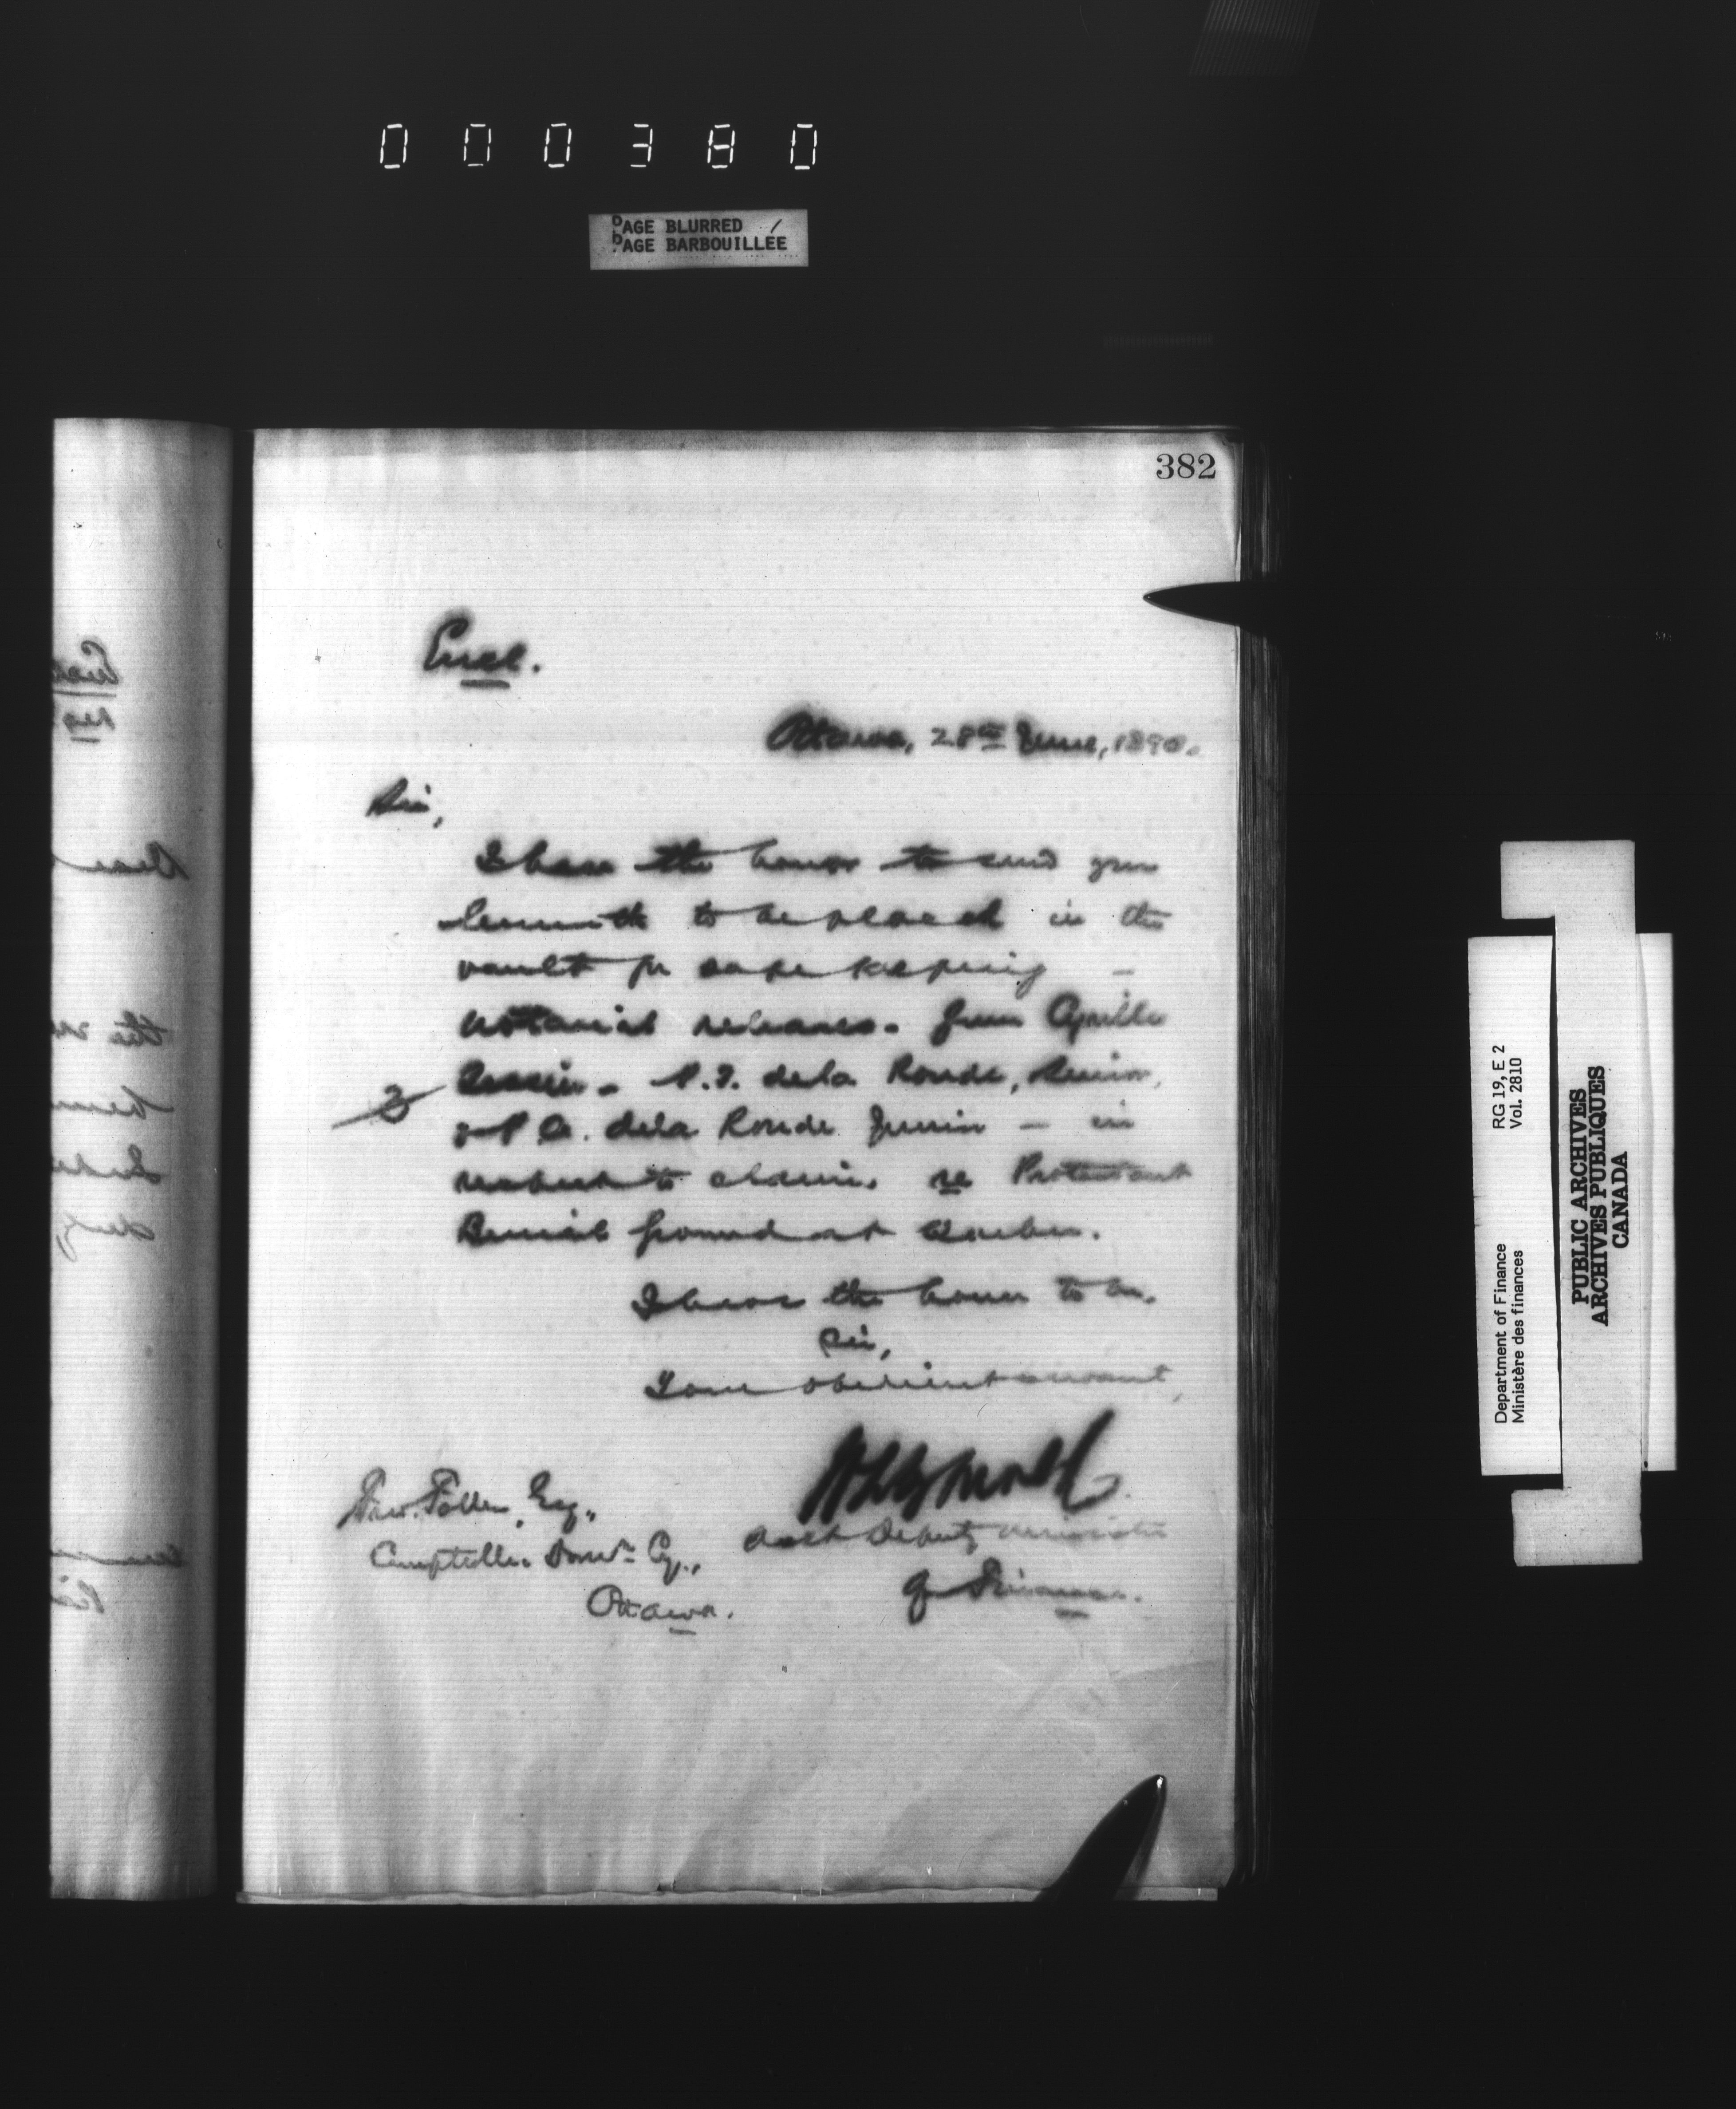 000380
PAGE BLURRED
PAGE BARBOUILLÉE
382
Encl.
Ottawa, 28th June, 1890.
Sir,
I have the honor to send you
herewith to be placed in the
vault for safe keeping —
notarial releases. from Cyrille
Tessier. P. T. de la Ronde, Senior,
3
& P. A. de la Ronde Junior — in
respect to claim. re Protestant
Burial ground at Quebec.
I have the honor to be.
Sir,
Your obedient servant,
Asst Deputy Minister
of Finance.
Toller, Esq.,
Comptroller Domn Cy.,
Ottawa.
Department of Finance RG 19, E 2
Ministère des finances Vol. 2810
PUBLIC ARCHIVES
ARCHIVES PUBLIQUES
CANADA